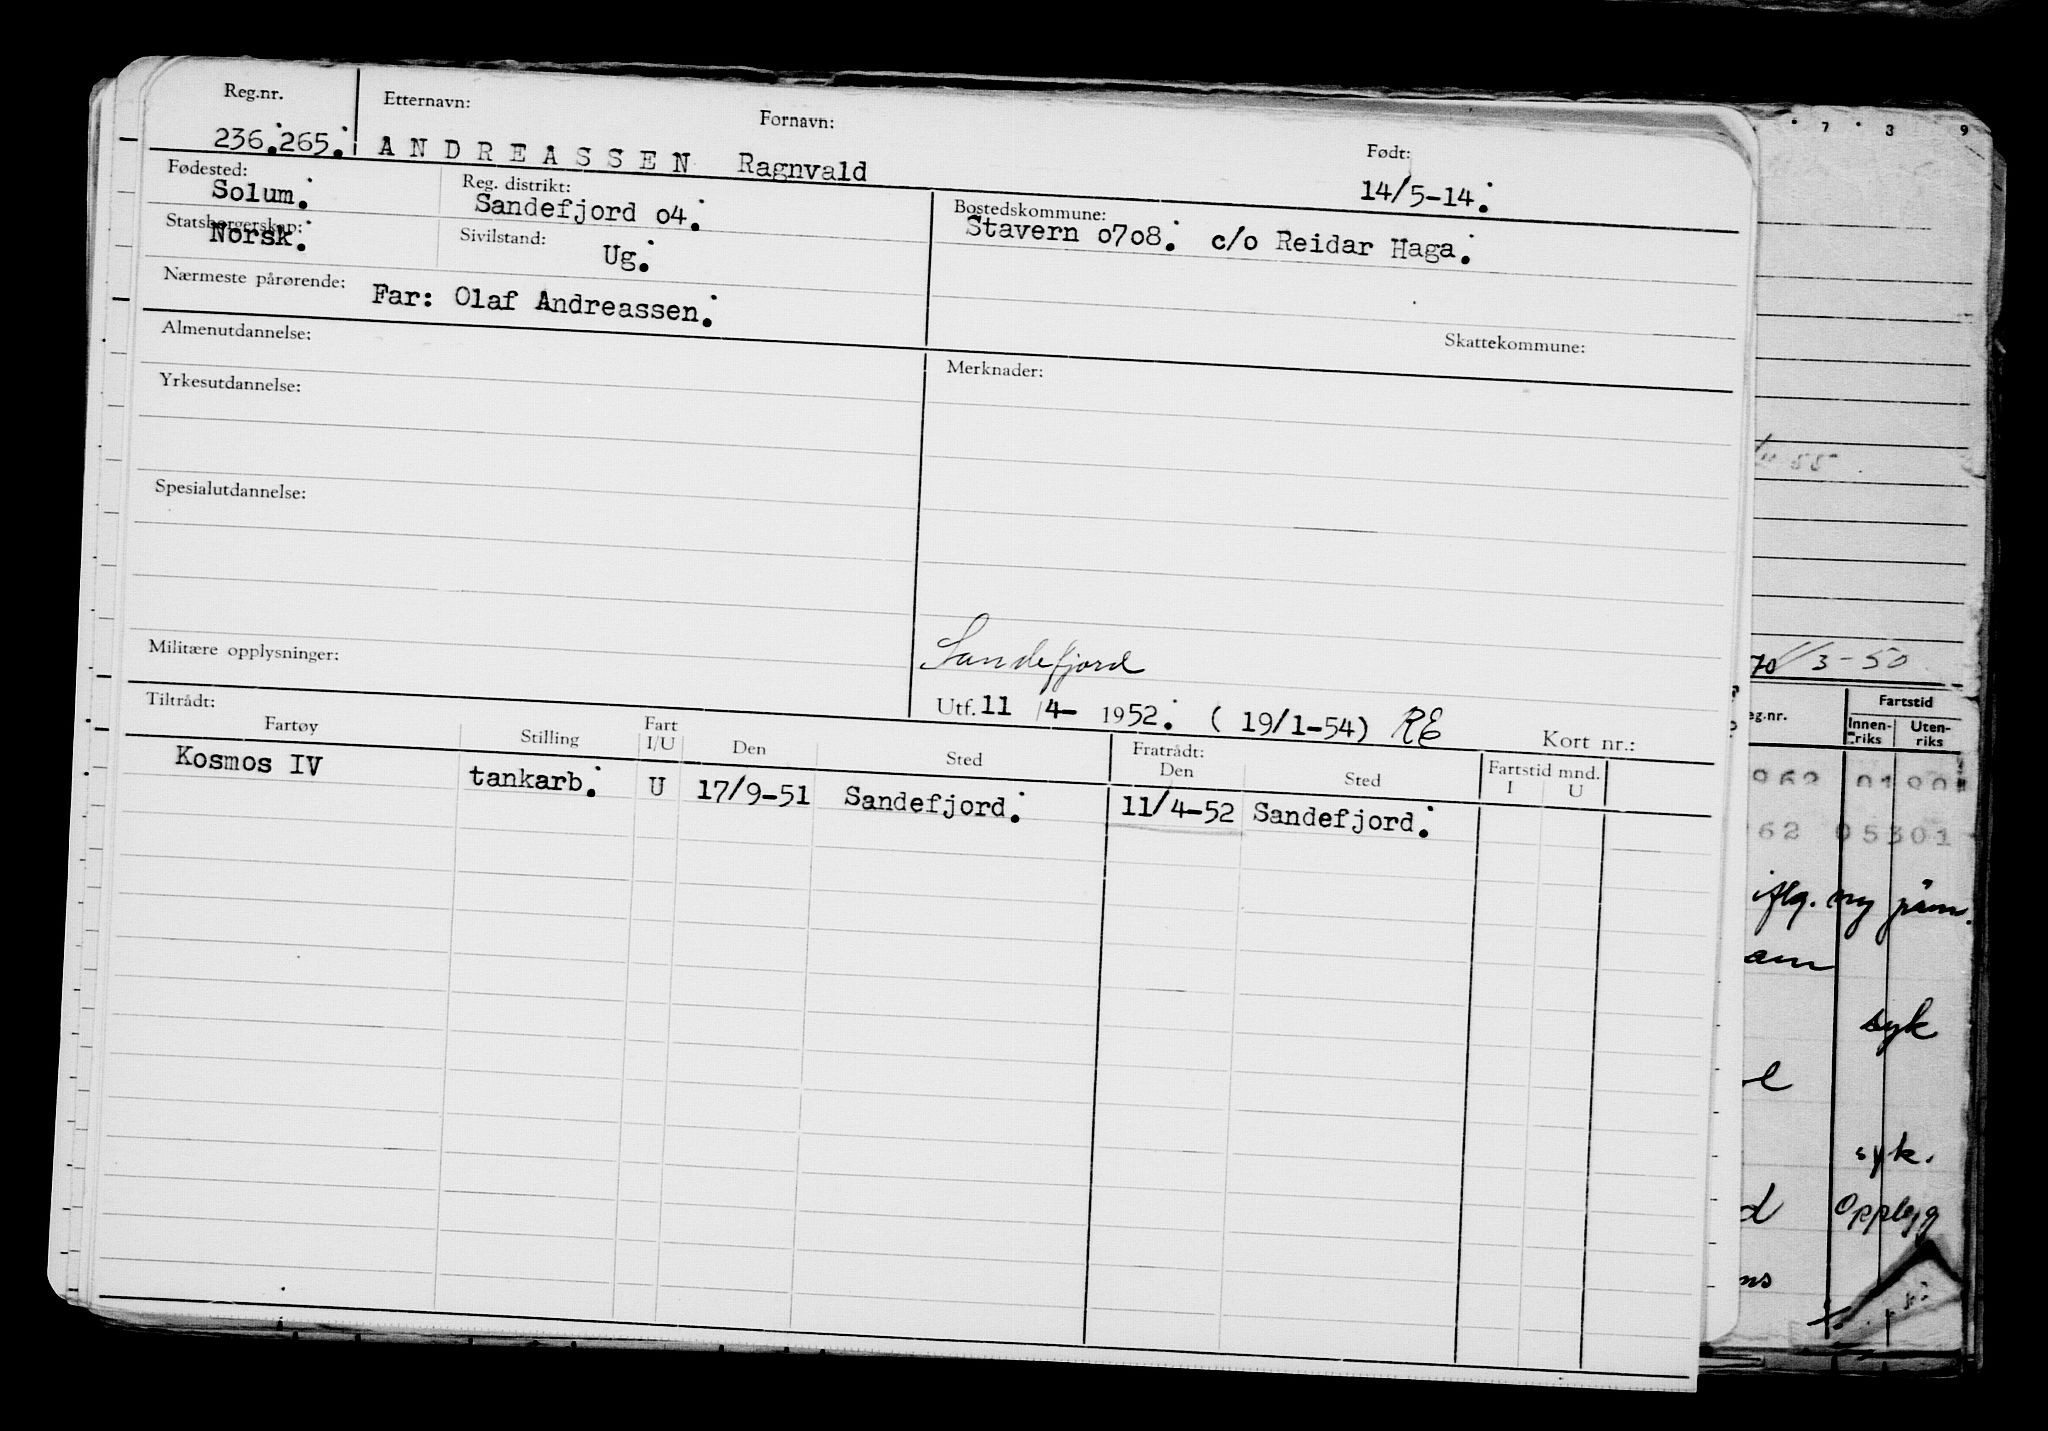 Reg.nr. Etternavn: Fornavn: Født:
236.265. ANDREASSEN Ragnvald 14/5-14.
Fødested: Reg. distrikt: Bostedskommune:
Solum. Sandefjord o4. Stavern o7o8. c/o Reidar Haga.
Statsborgerskap: Sivilstand:
Norsk. Ug.
Nærmeste pårørende: Far: Olaf Andreassen.
Skattekommune:
Almenutdannelse: Merknader:
Yrkesutdannelse:
Spesialutdannelse:
Militære opplysninger: Sandefjord
Utf. 11/4- 1952. ( 19/1-54) RE Kort nr.:
Tiltrådt: Fratrådt:
Fartøy Stilling Fart I/U Den Sted Den Sted Fartstid mnd. I U
Kosmos IV tankarb. U 17/9-51 Sandefjord. 11/4-52 Sandefjord.
7 3 9
70 1/3-50
eg.nr. Fartstid
Innenriks Utenriks
962 01 90
62 05301
ny
syk
syk.
Opplegg